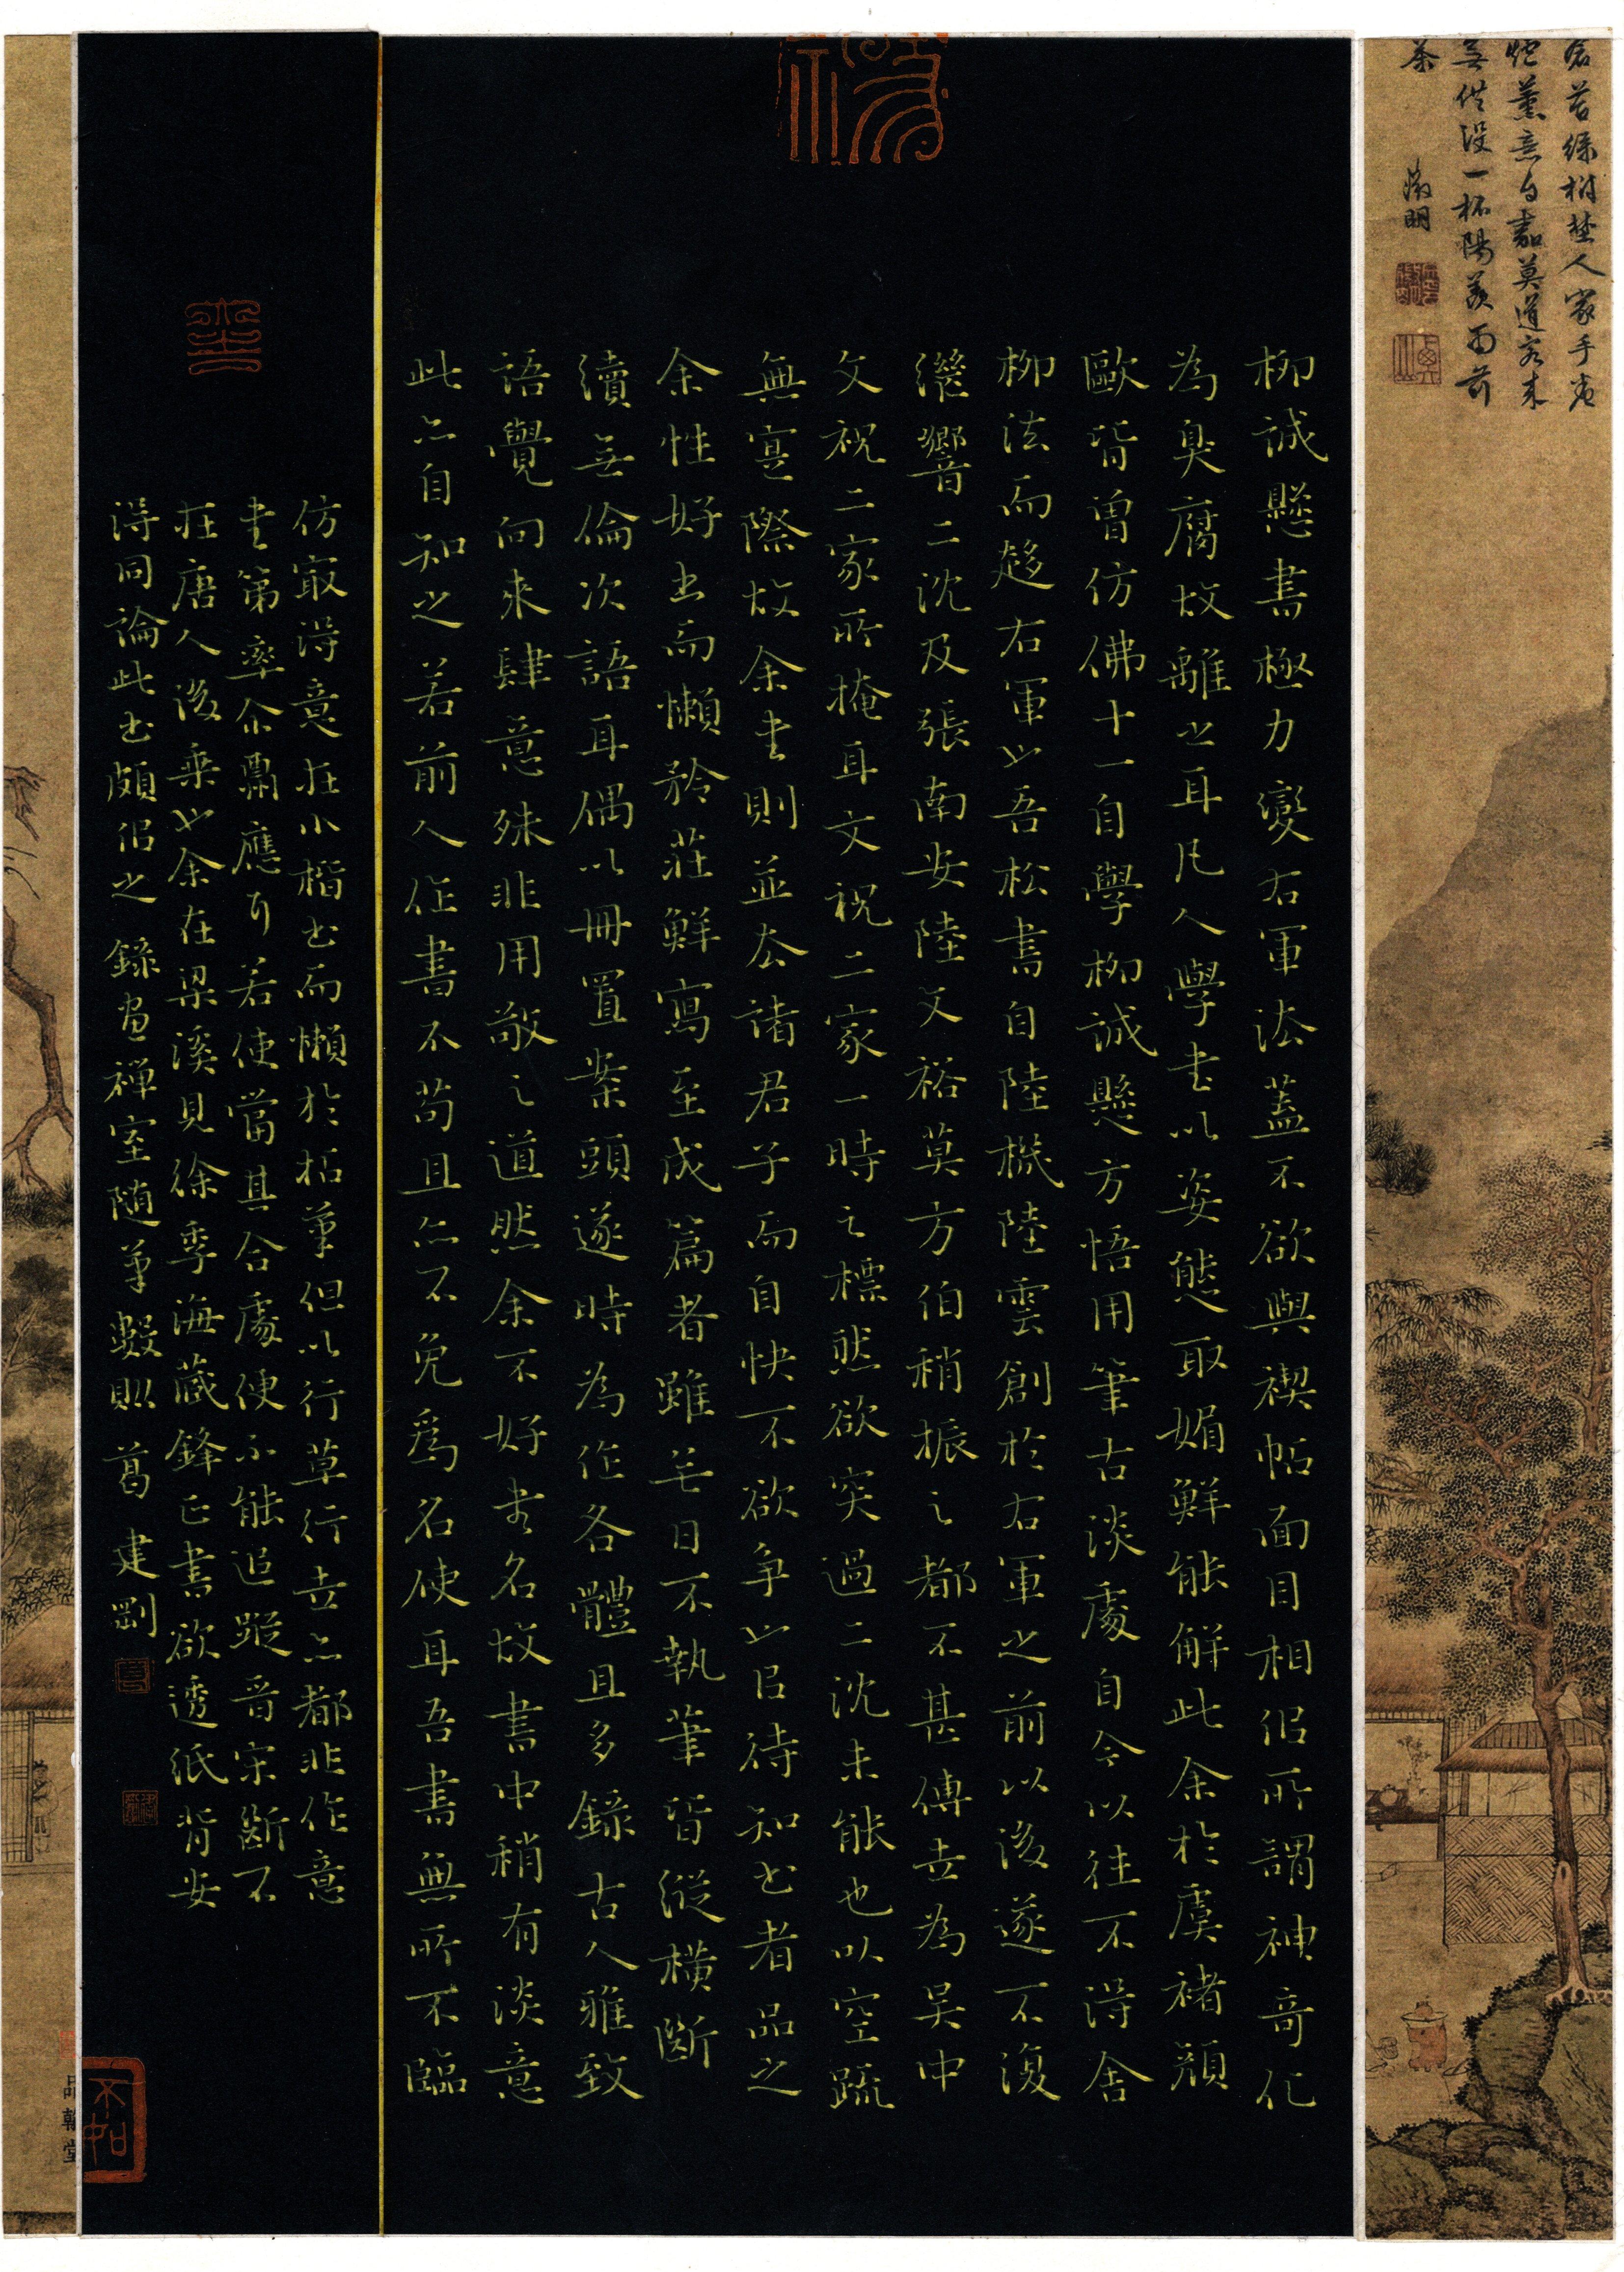 倉苔綠樹埜人家手卷
炉薰意自嘉莫道客來
無供設一杯陽羨雨前
茶
徵明
柳誠懸書極力變右軍法蓋不欲與禊帖面目相佀所謂神奇化
為臭腐故離之耳凡人學書以姿態取媚鮮能解此余於虞褚顏
歐皆曾仿佛十一自學柳誠懸方悟用筆古淡處自今以往不得舍
柳法而趨右軍也吾松書自陸機陸雲創於右軍之前以後遂不復
繼響二沈及張南安陸文裕莫方伯稍振之都不甚傳世為吴中
文祝二家所掩耳文祝二家一時之標然欲突過二沈未能也以空疏
無寔際故余書則並去諸君子而自快不欲争也以待知書者品之
余性好書而懶矜莊鮮寫至成篇者雖無日不執筆皆縱橫斷
續無倫次語耳偶以冊置案頭遂時為作各體且多錄古人雅致
語覺向來肆意殊非用敬之道然余不好書名故書中稍有淡意
此亦自知之若前人作書不苟且亦不免爲名使耳吾書無所不臨
仿最得意在小楷書而懶於拓筆但以行草行世亦都非作意
書第率尒酬應耳若使當其合處便不能追蹤晋宋斷不
在唐人後乘也余在梁溪見徐季海藏鋒正書欲透紙背安
得同論此書頗佀之 錄畫禪室随筆數則 葛建剛
品翰堂